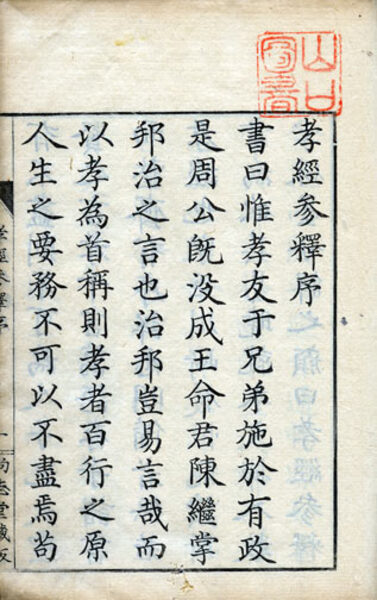 山口
圖書
孝經參釋序
書曰惟孝友于兄弟施於有政
是周公旣没成王命君陳繼掌
邦治之言也治邦豈易言哉而
以孝為首稱則孝者百行之原
人生之要務不可以不盡焉苟
孝經參釋序
一
尚志堂藏版